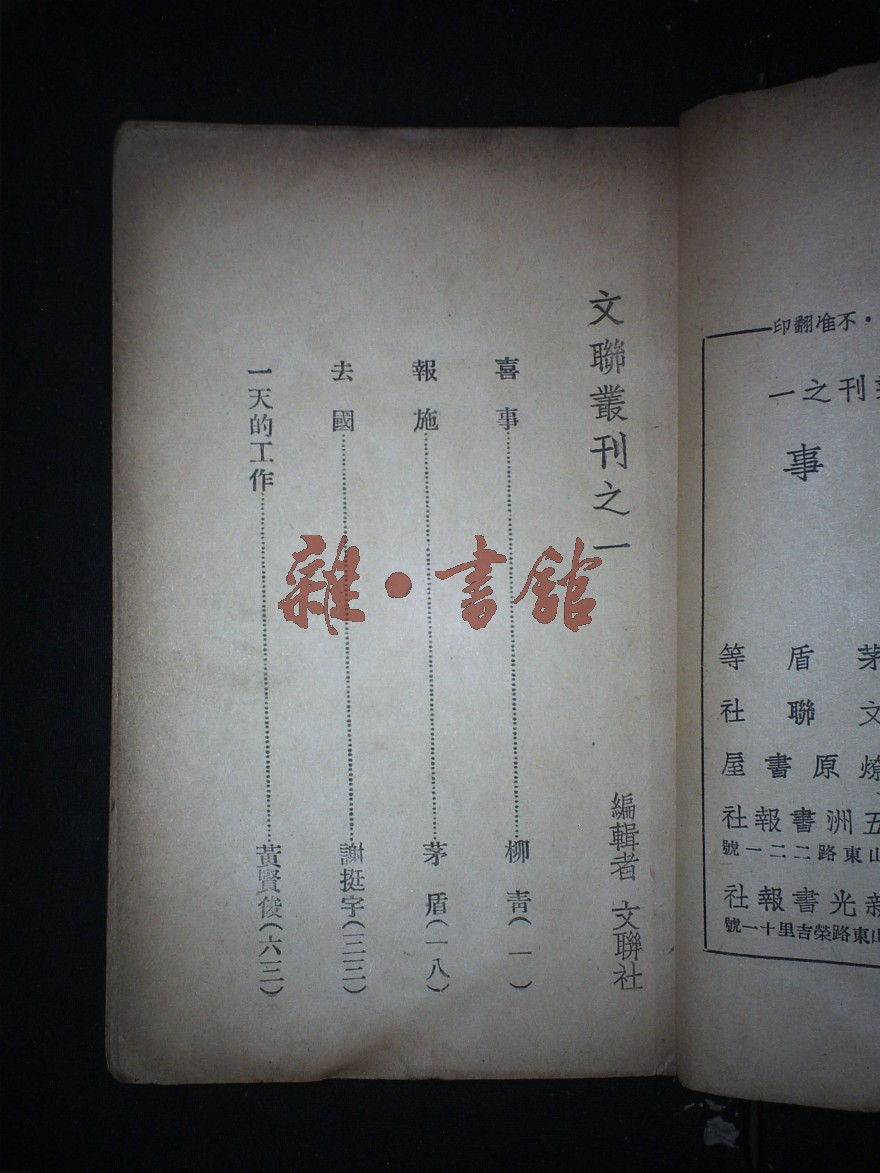 ・不准翻印
刊之一
事
茅盾等
文聯社
燎原書屋
五洲書報社
山東路二二一號
新光書報社
山東路榮吉里十一號
文聯叢刊之一
編輯者 文聯社
喜事……柳青(一)
報施……茅盾(一八)
去國……謝挺宇(三三)
一天的工作……黃賢俊(六三)
雜・書館